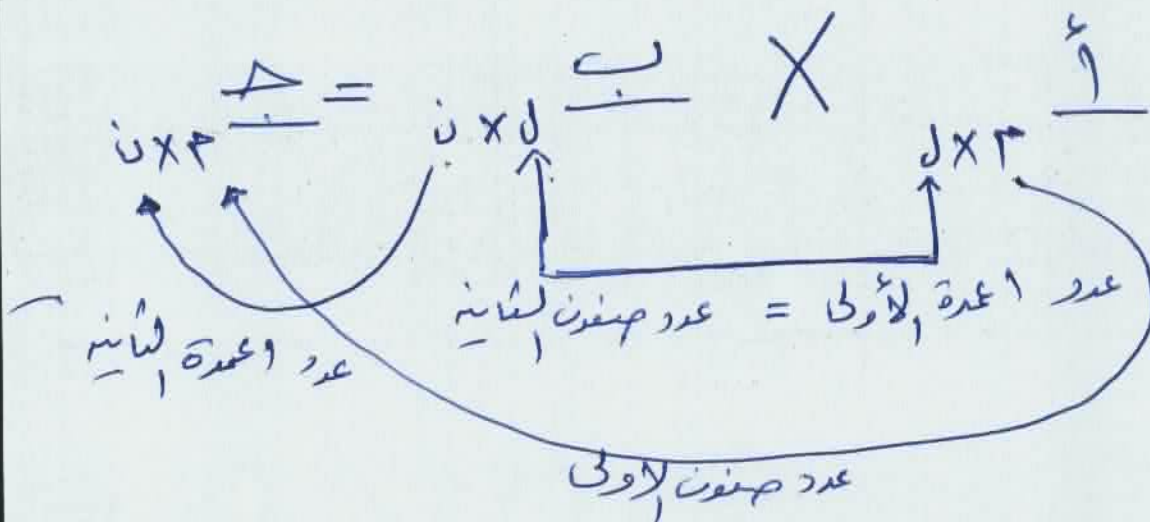 أ م×ل × ب ل×ن = جـ م×ن
عدد اعمدة الأولى = عدد صفوف الثانيه
عدد اعمدة الثانيه
عدد صفوف الاولى